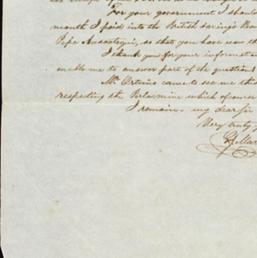 For your government I should
month I paid into the British Savings Ban
Pepe Ansoategui, so that you have seen th
I thank you for your informati
enable me to answer part of the questions
Mr Ortuño came to see me this
respecting the Portsmine which of course
I remain my dear Sir
Very truly y